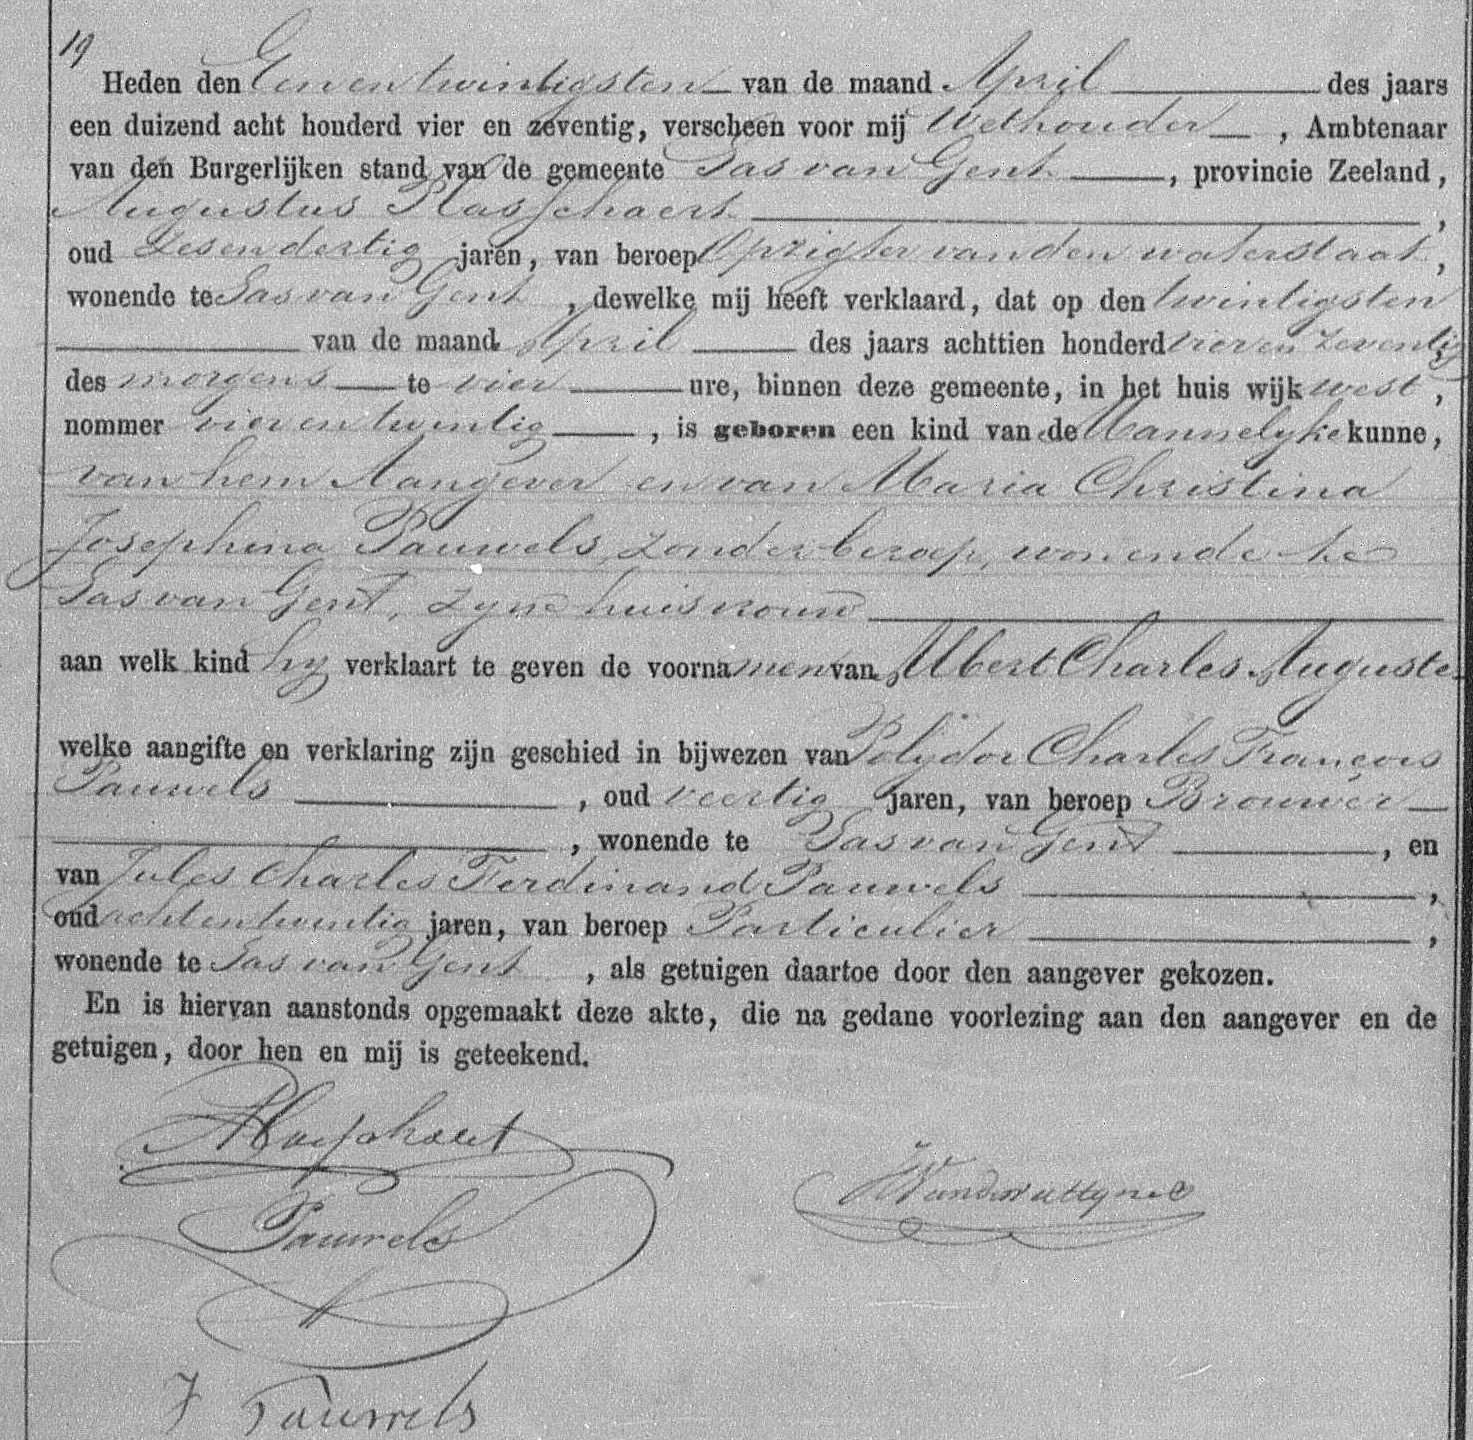 19
Heden den Eenentwintigsten van de maand April des jaars
een duizend acht honderd vier en zeventig, verscheen voor mij Wethouder, Ambtenaar
van den Burgerlijken stand van de gemeente Sas van Gent, provincie Zeeland,
Augustus Plasschaert,
oud Zesendertig jaren, van beroep Opzigter van den waterstaat,
wonende te Sas van Gent, dewelke mij heeft verklaard, dat op den twintigsten
van de maand April des jaars achttien honderd vier en zeventig
des morgens te vier ure, binnen deze gemeente, in het huis wijk west,
nommer vier en twintig, is geboren een kind van de Mannelyke kunne,
van hem Aangever en van Maria Christina
Josephina Pauwels, zonder beroep, wonende te
Sas van Gent, zyne huisvrouw
aan welk kind hy verklaart te geven de voornamen van Albert Charles Auguste
welke aangifte en verklaring zijn geschied in bijwezen van Polydor Charles François
Pauwels, oud veertig jaren, van beroep Brouwer
, wonende te Sas van Gent, en
van Jules Charles Ferdinand Pauwels,
oud achtentwintig jaren, van beroep Particulier,
wonende te Sas van Gent, als getuigen daartoe door den aangever gekozen.
En is hiervan aanstonds opgemaakt deze akte, die na gedane voorlezing aan den aangever en de
getuigen, door hen en mij is geteekend.
APlasschaert
Pauwels
J Pauwels